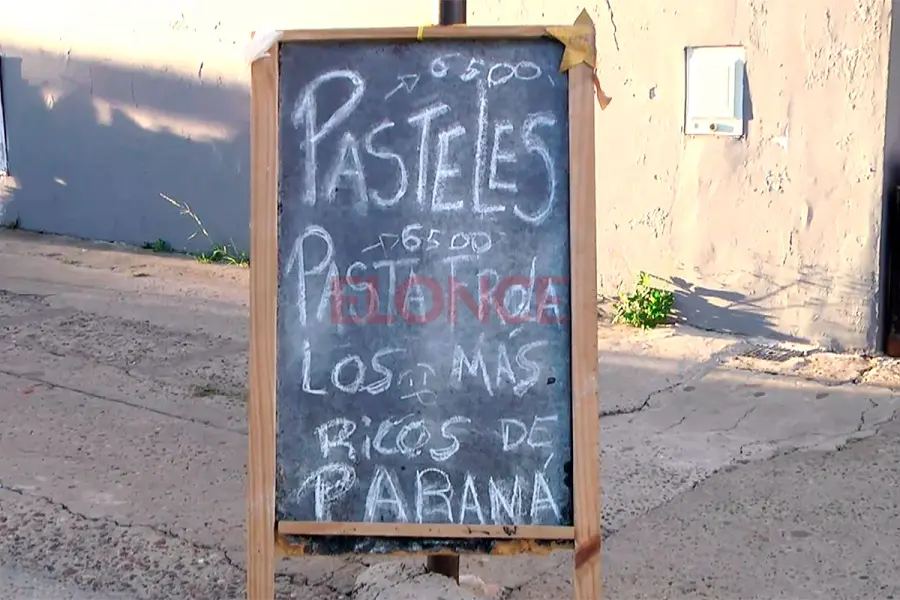 → 6500
PASTELES
→ 6500
PASTA FROLA
ELONCE
LOS MÁS
RICOS DE
PARANÁ